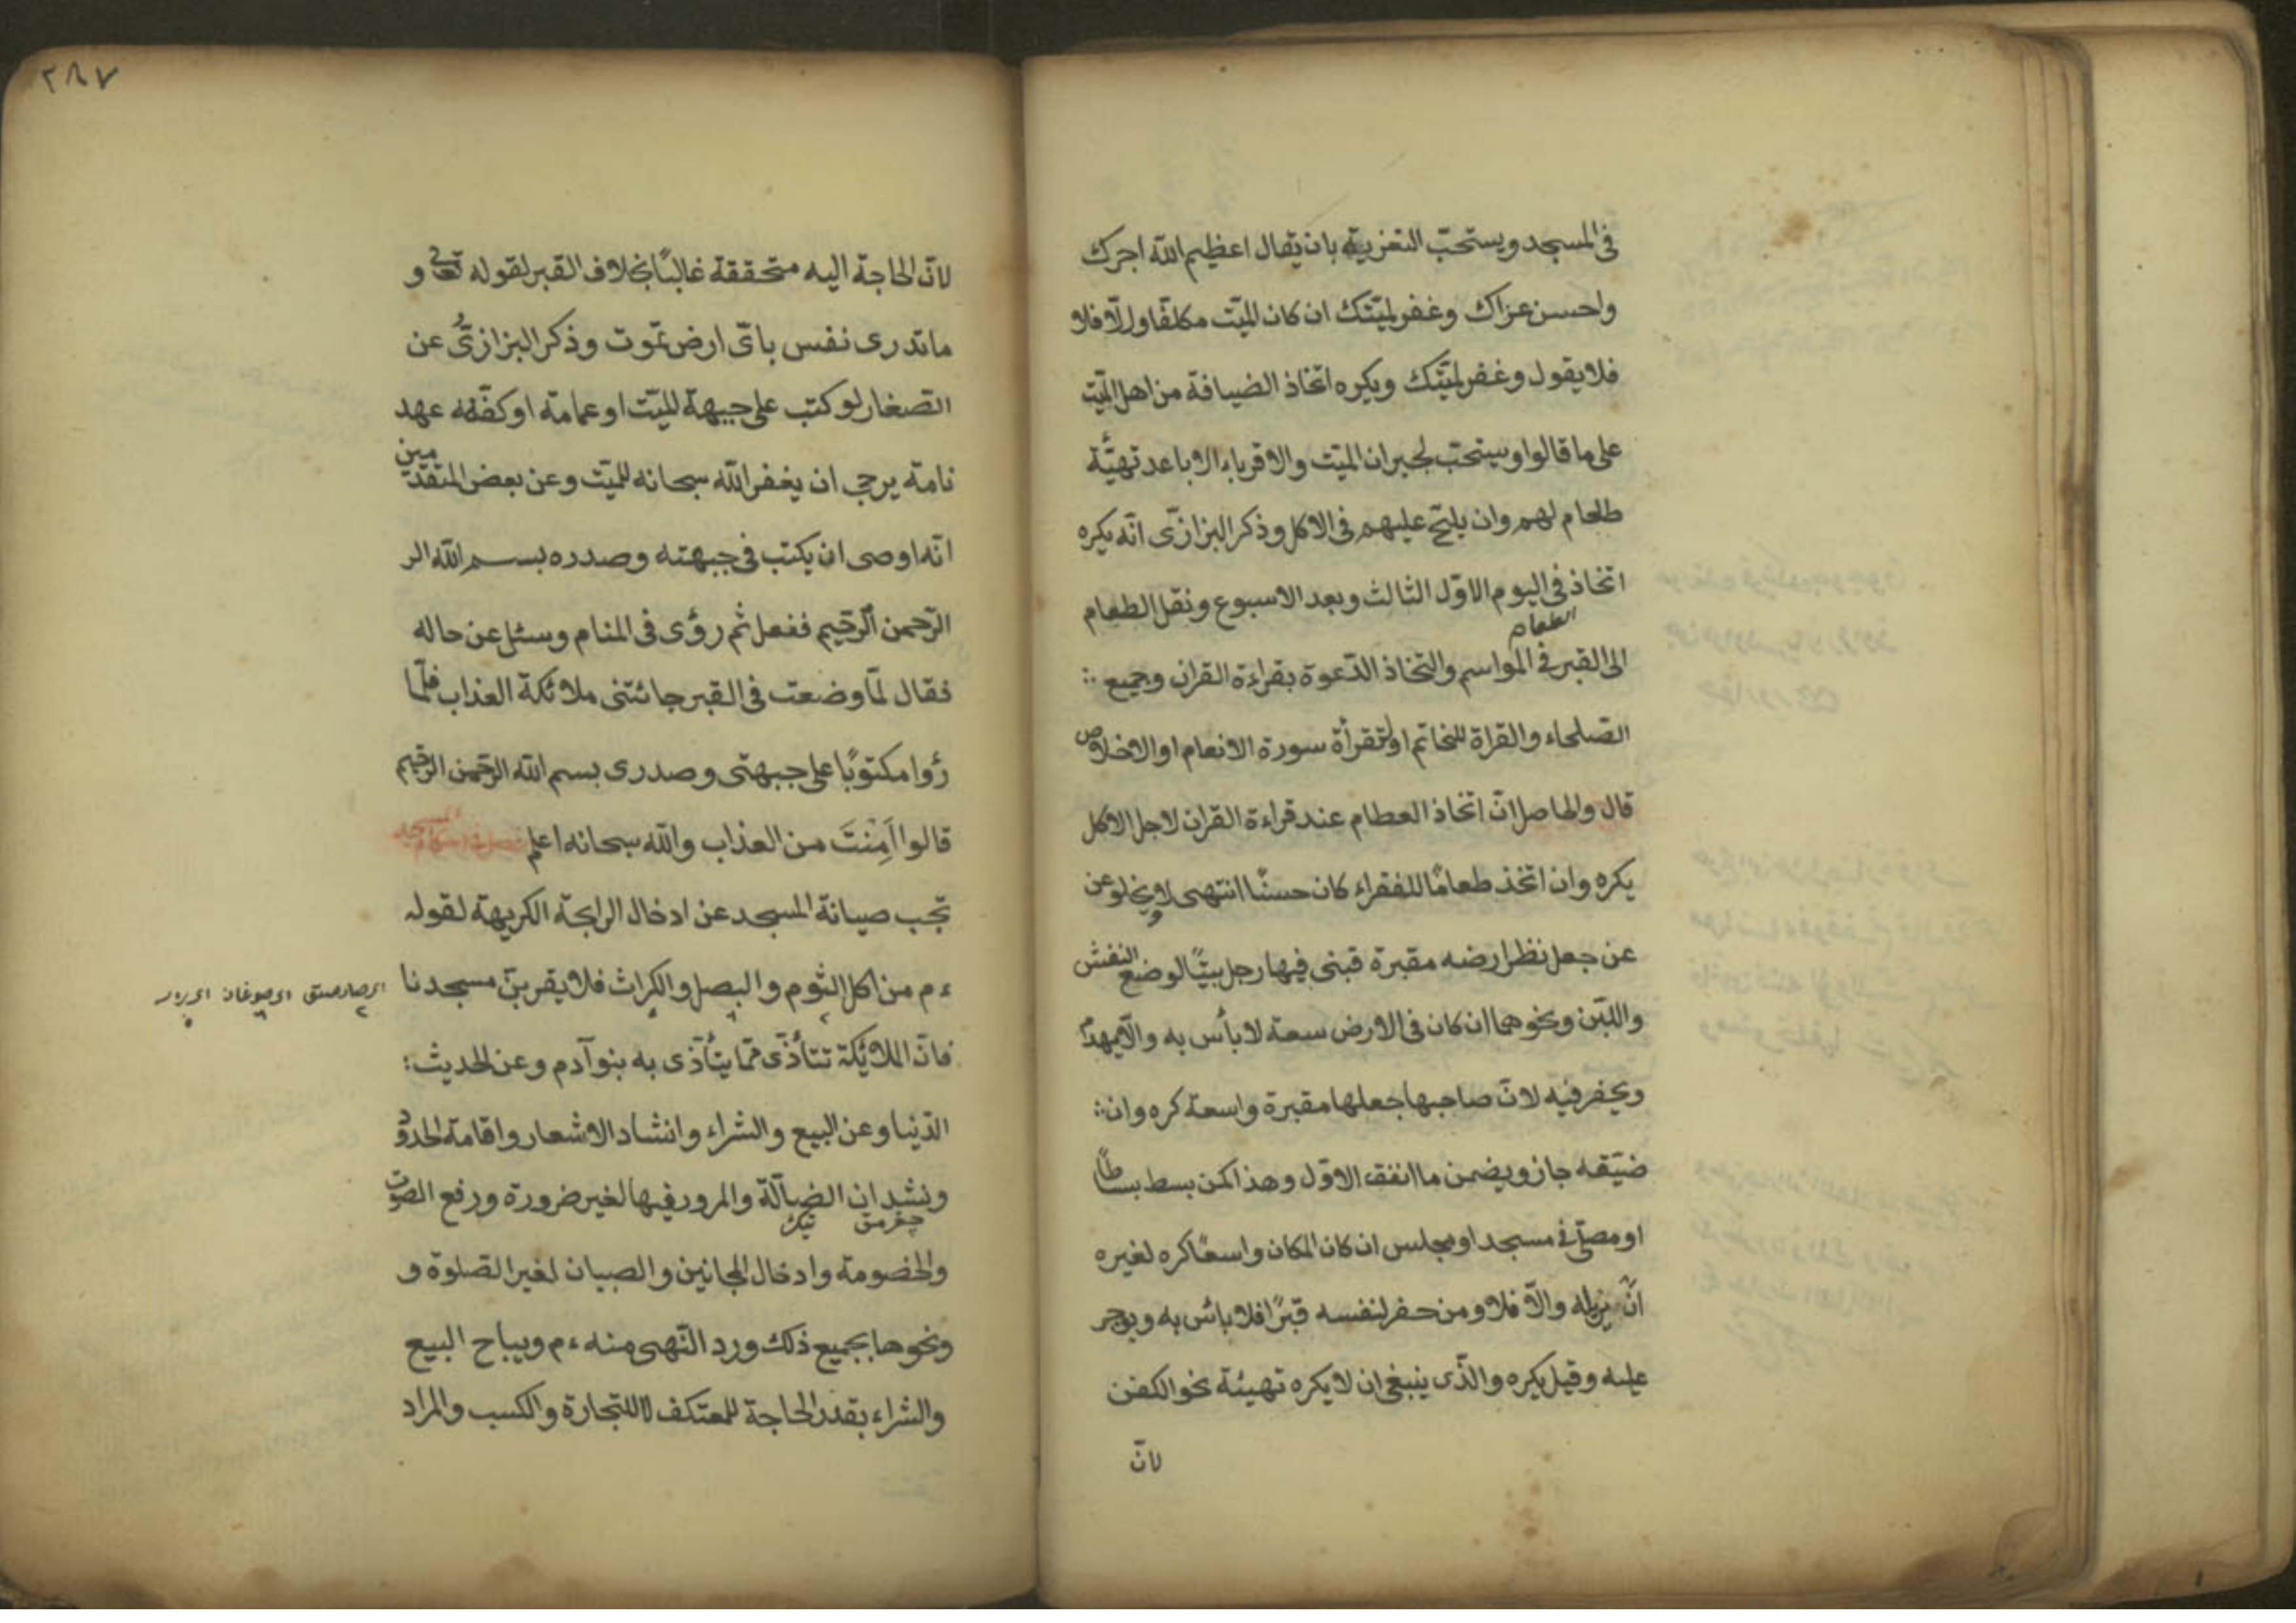 في المسجد ويستحبّ التعزية بان يقال اعظيم الله اجرك
واحسن عزاك وغفر لميّتك ان كان الميّت مكلفًا والّا فلا
فلا يقول وغفر لميّتك ويكره اتخاذ الضيافة من اهل الميّت
على ما قالوا ويستحبّ لجيران الميّت والاقرباء الاباعد تهيّئة
طعام لهم وان يلحّ عليهم في الاكل وذكر البزازىّ انّه يكره
اتخاذ في اليوم الاوّل الثالث وبعد الاسبوع ونقل الطعام
الطعام
الى القبر في المواسم والتخاذ الدّعوة بقراءة القران وجميع
الصّلحاء والقراة للخاتم او لتقرأة سورة الانعام او الاخلاص
قال والحاصل انّ اتخاذ العطام عند قراءة القران لاجل الاكل
يكره وان اتخذ طعامًا للفقراء كان حسنًا انتهى ولا يخلو عن
عن جعل نظر ارضه مقبرة قبنى فيها رجل بيتًا لوضع النفش
واللبّن ونحوهما ان كان في الارض سعة لا بأس به والّا يهدّم
ويحفر فيه لانّ صاحبها جعلها مقبرة واسعة كره وان
ضيّقه جاز ويضمن ما انفق الاوّل وهذا كمن بسط بساطًا
او مصلّى في مسجد او مجلس ان كان المكان واسعًا كره لغيره
انّ يزيله والّا فلا ومن حفر لنفسه قبرًا فلا بائس به ويوجر
عليه وقيل يكره والّذى ينبغى ان لا يكره تهيئة نحو الكفن
لانّ
٢٨٧
لانّ الحاجة اليه متحققة غالبًا بخلاف القبر لقوله تعالى و
ما تدرى نفس باىّ ارض تموت وذكر البزازىّ عن
الصّغار لو كتب على جبهة الميّت او عمامة او كفّنه عهد
نامة يرجى ان يغفر الله سبحانه للميّت وعن بعض المتقدّمين
انّه اوصى ان يكتب في جبهته وصدره بسم الله الر
الرّحمن الرّحيم ففعل ثم رؤى فى المنام وسئل عن حاله
فقال لمّا وضعت في القبر جائتنى ملائكة العذاب فلمّا
رؤا مكتوبًا على جبهتى وصدرى بسم الله الرّحمن الرّحيم
قالوا اَمِنْتَ من العذاب والله سبحانه اعلم فصل في احكام المسجد
تجب صيانة المسجد عن ادخال الرايحة الكريهة لقوله
ءم من اكل الثوم والبصل والكراث فلا يقربنّ مسجدنا
فانّ الملائكة تتأذّى ممّا يتأذّى به بنو آدم وعن الحديث
الدّنيا وعن البيع والشراء وانشاد الاشعار واقامة الحدود
ونشدان الضالّة والمرور فيها لغير ضرورة ورفع الصوت
والخصومة وادخال المجانين والصبيان لغير الصّلوة و
ونحوها بجميع ذلك ورد النّهى منه ءم ويباح البيع
والشراء بقدر الحاجة للمعتكف لا للتجارة والكسب والمراد